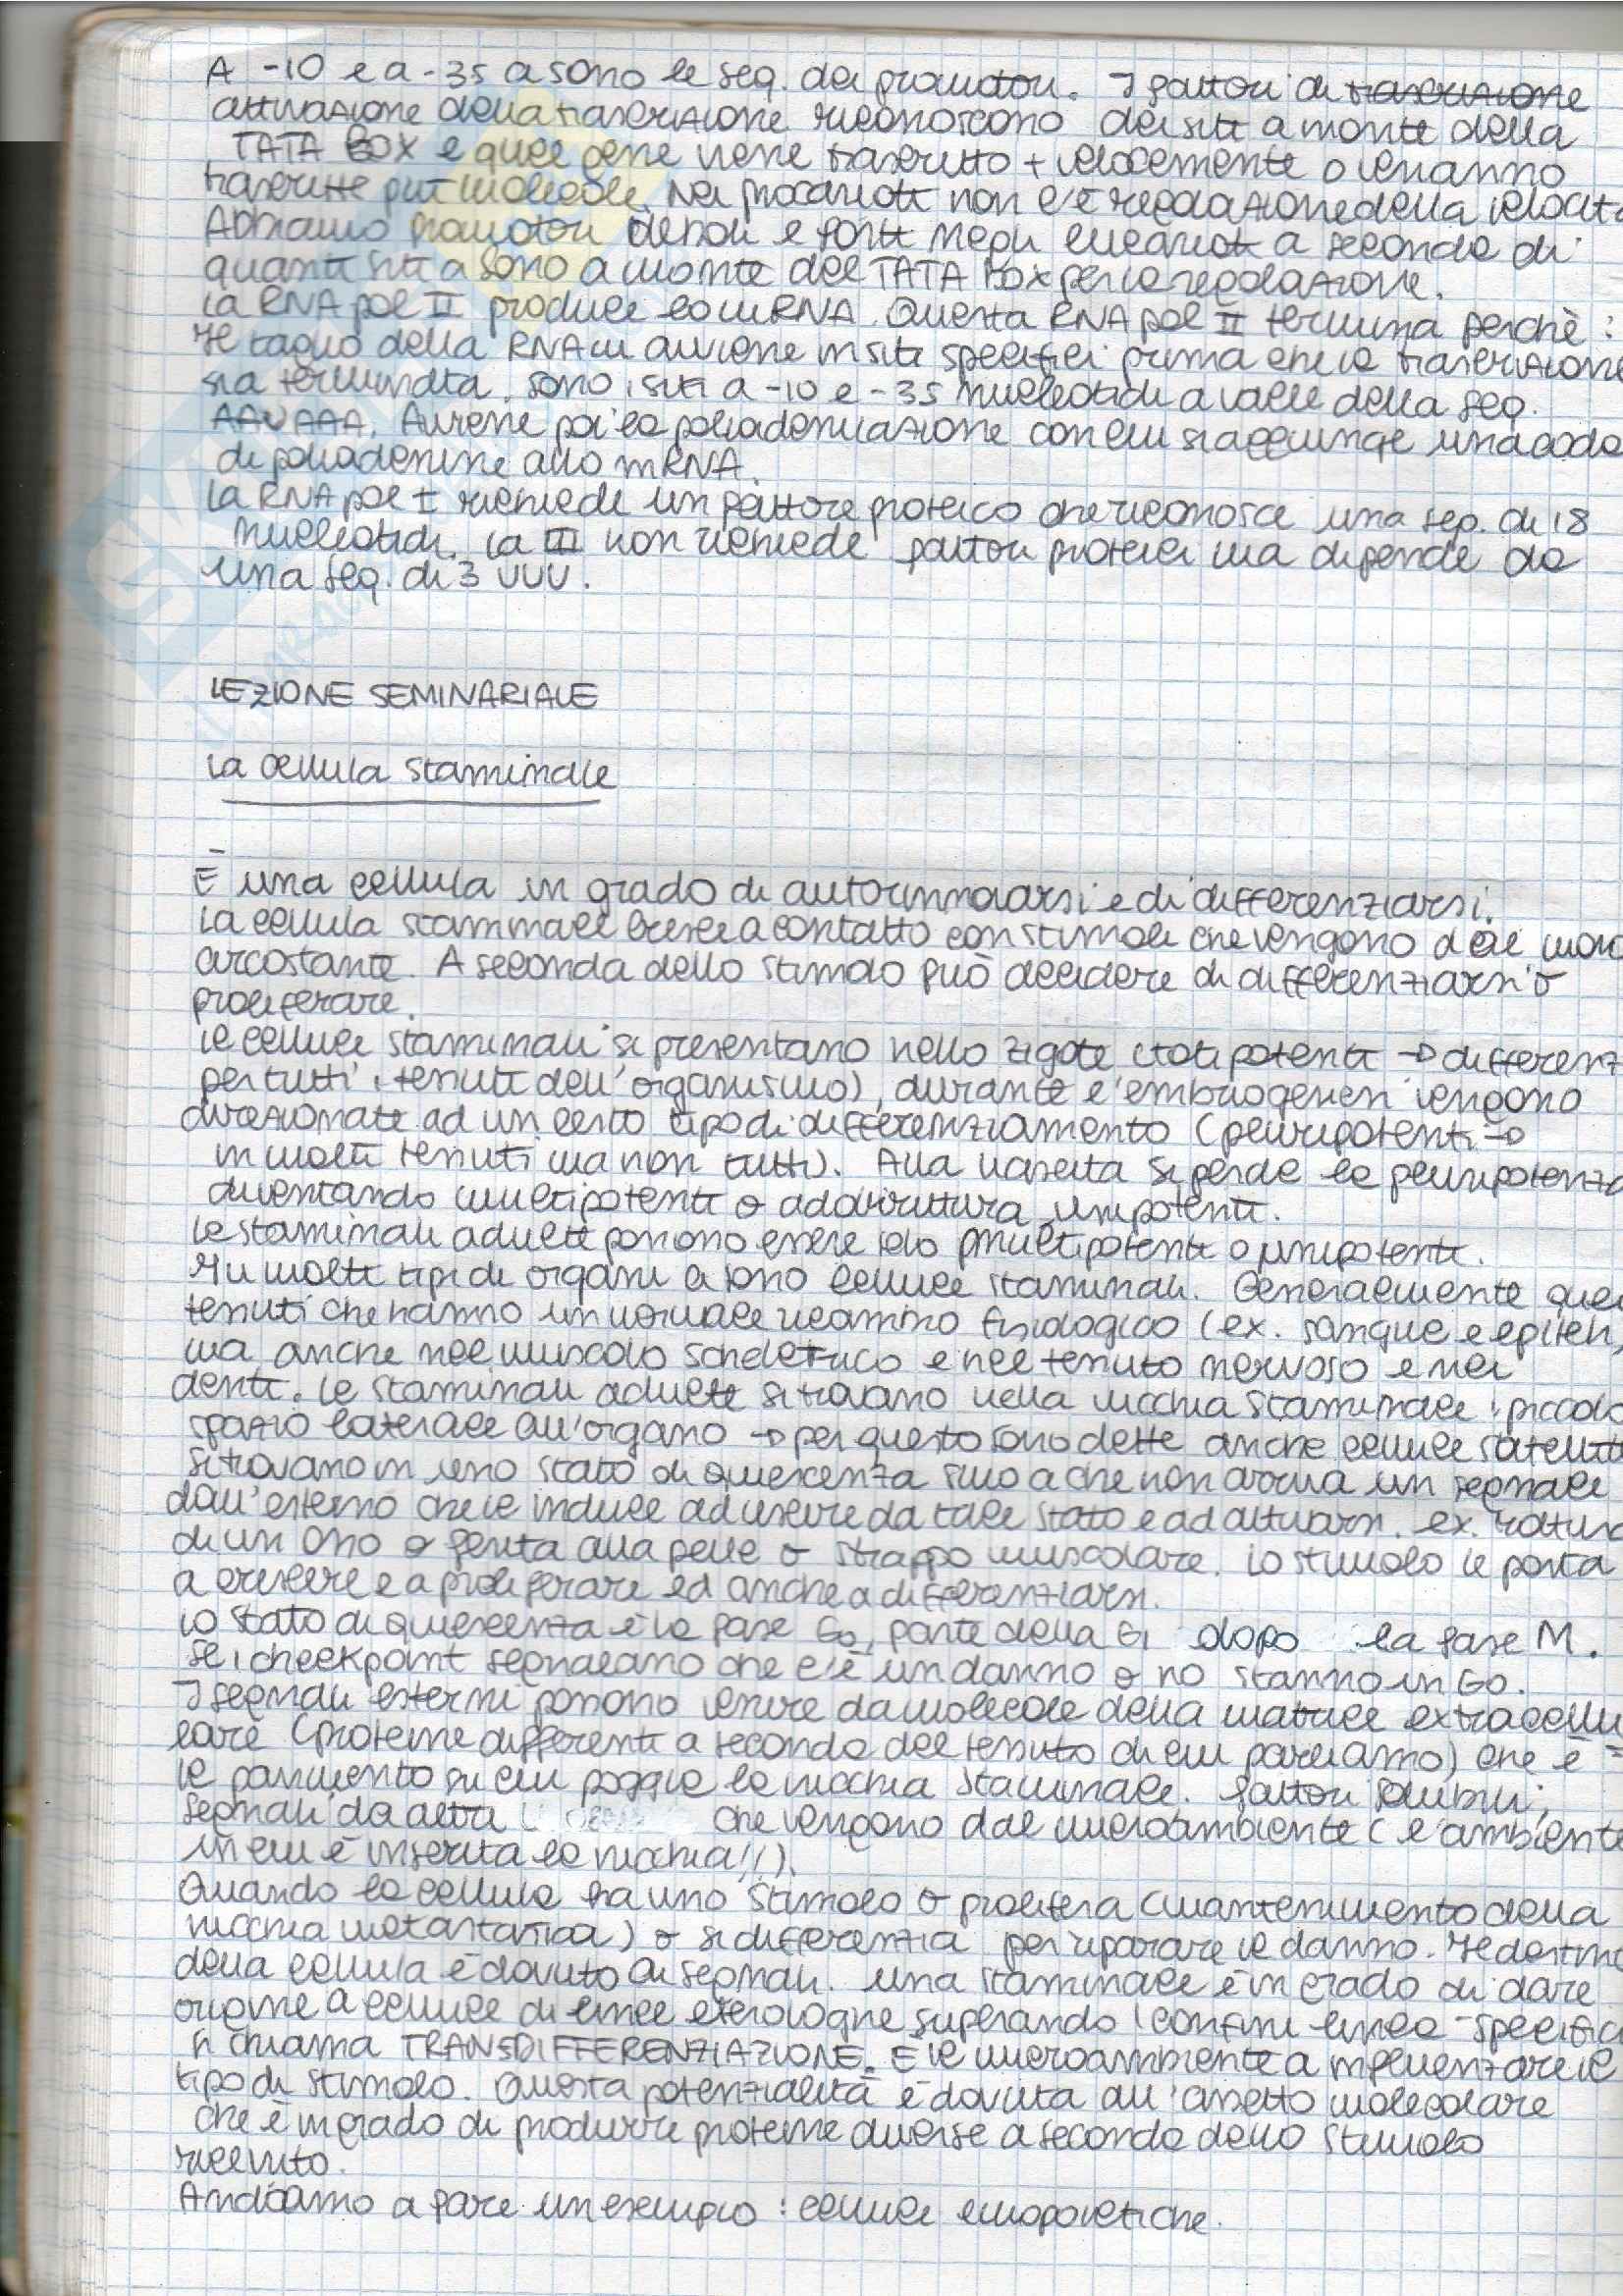 A -10 e a -35 ci sono le seq. dei promotori. I fattori di trascrizione
attivazione della trascrizione riconoscono dei siti a monte della
TATA BOX e quel gene viene trascritto + velocemente o verranno
trascritte più molecole. Nei procarioti non c'è regolazione della velocit
Abbiamo promotori deboli e forti negli eucarioti a seconda di
quanti siti ci sono a monte del TATA Box per la regolazione.
La RNA pol II produce lo mRNA. Questa RNA pol II termina perchè:
Il taglio della RNA avviene in siti specifici prima che la trascrizione
sia terminata. Sono i siti a -10 e -35 nucleotidi a valle della seq.
AAUAAA. Avviene poi la poliadenilazione con cui si aggiunge una coda
di poliadenine allo mRNA.
La RNA pol I richiede un fattore proteico che riconosce una seq. di 18
nucleotidi. La III non richiede fattori proteici ma dipende da
una seq. di 3 UUU.
LEZIONE SEMINARIALE
La cellula staminale
È una cellula in grado di autorinnovarsi e di differenziarsi.
La cellula staminale cresce a contatto con stimoli che vengono dal mon
circostante. A seconda dello stimolo può decidere di differenziarsi o
proliferare.
Le cellule staminali si presentano nello zigote (totipotenti → differenz
per tutti i tessuti dell'organismo), durante l'embriogenesi vengono
direzionate ad un certo tipo di differenziamento (pluripotenti →
in molti tessuti ma non tutti). Alla nascita si perde la pluripotenza
diventando multipotenti o addirittura unipotenti.
Le staminali adulte possono essere solo multipotenti o unipotenti.
In molti tipi di organi ci sono cellule staminali. Generalmente quei
tessuti che hanno un normale ricambio fisiologico (ex. sangue e epiteli)
ma anche nel muscolo scheletrico e nel tessuto nervoso e nei
denti. Le staminali adulte si trovano nella nicchia staminale: piccolo
spazio laterale all'organo → per questo sono dette anche cellule satelliti
Si trovano in uno stato di quiescenza fino a che non arriva un segnale
dall'esterno che le induce ad uscire da tale stato e ad attivarsi. ex. rottura
di un osso o ferita alla pelle o strappo muscolare. Lo stimolo le porta
a crescere e a proliferare ed anche a differenziarsi.
Lo stato di quiescenza è la fase G0, parte della G1 dopo la fase M.
Se i checkpoint segnalano che c'è un danno o no stanno in G0.
I segnali esterni possono venire da molecole della matrice extracellu
lare (proteine differenti a seconda del tessuto di cui parliamo) che è
il pavimento su cui poggia la nicchia staminale. fattori solubili;
segnali da altri che vengono dal microambiente (l'ambiente
in cui è inserita la nicchia!!).
Quando la cellula ha uno stimolo o prolifera (mantenimento della
nicchia) o si differenzia per riparare il danno. Il destino
della cellula è dovuto ai segnali. Una staminale è in grado di dare
origine a cellule di linee eterologhe superando i confini linea-specific
si chiama TRANSDIFFERENZIAZIONE. È il microambiente a influenzare il
tipo di stimolo. Questa potenzialità è dovuta all'assetto molecolare
che è in grado di produrre proteine diverse a seconda dello stimolo
ricevuto.
Andiamo a fare un esempio: cellule emopoietiche.